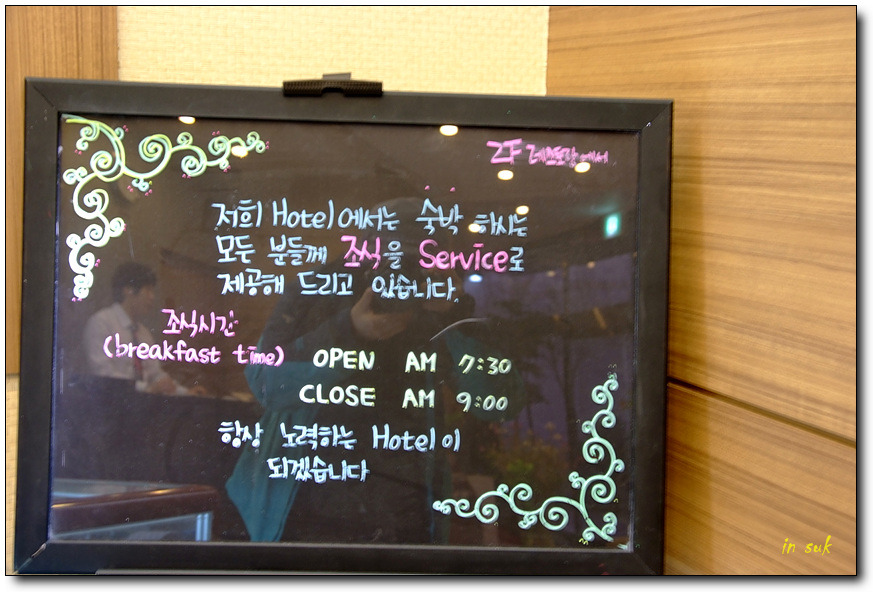 2F 레스토랑에서
저희 Hotel에서는 숙박 하시는
모두 분들께 조식을 Service로
제공해 드리고 있습니다.
조식시간
(breakfast time)
OPEN AM 7:30
CLOSE AM 9:00
항상 노력하는 Hotel이
되겠습니다
in suk